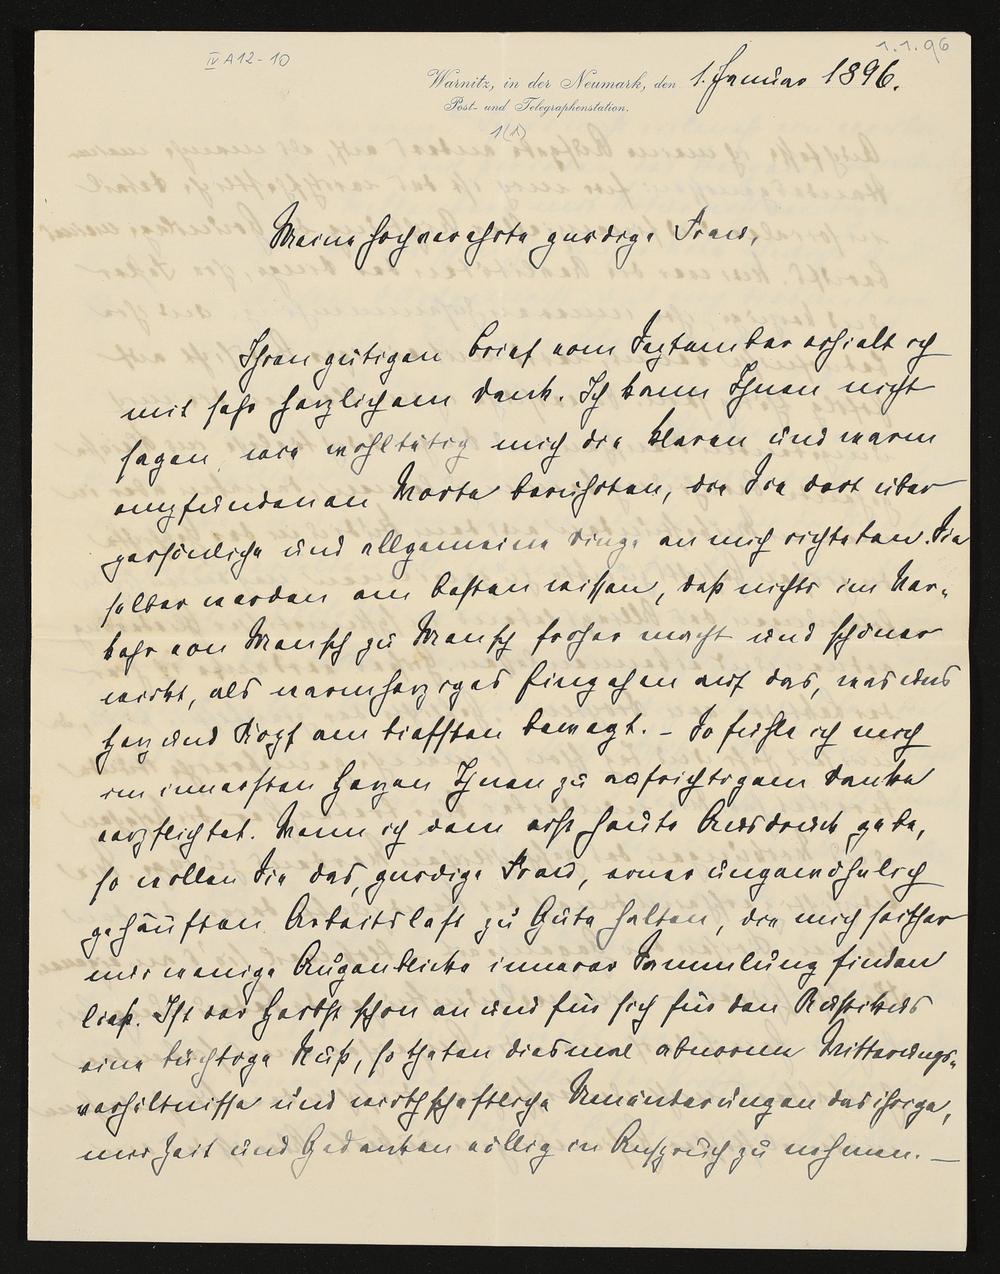 IV A 12-10
1.1.96
Warnitz, in der Neumark, den 1. Januar 1896.
Post- und Telegraphenstation.
1(1)
Meine hochverehrte gnädige Frau,
Ihren gütigen Brief vom September erhielt ich
mit sehr herzlichem Dank. Ich kann Ihnen nicht
sagen, wie wohltätig mich die klaren und warm
empfundenen Worte berührten, die Sie dort über
persönliche und allgemeine Dinge an mich richteten. Sie
selber werden am besten wissen, daß nichts im Ver-
kehr von Mensch zu Mensch froher macht und schöner
wirkt, als warmherziges Eingehen auf das, was uns
Herz und Kopf am tiefsten bewegt. – So fühle ich mich
im innersten Herzen Ihnen zu aufrichtigem Danke
verpflichtet. Wenn ich dem erst heute Ausdruck gebe,
so wollen Sie das, gnädige Frau, einer ungewöhnlich
gehäuften Arbeitslast zu Gute halten, die mich seither
nur wenige Augenblicke innerer Sammlung finden
ließ. Ist der Herbst schon an und für sich für den Rustikus
eine tüchtige Nuß, so thaten diesmal abnorme Witterungs-
verhältnisse und wirthschaftliche Veränderungen das ihrige,
mir Zeit und Gedanken völlig in Anspruch zu nehmen. —